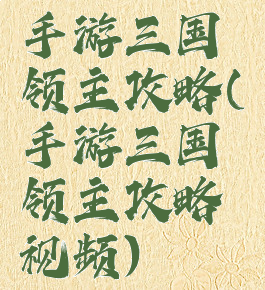 手游三国
领主攻略(
手游三国
领主攻略
视频)